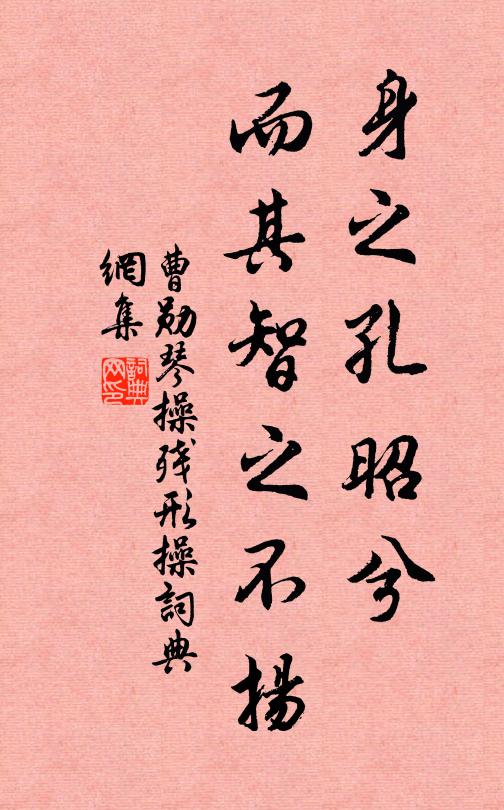 身之孔昭兮
而其智之不揚
曹勛琴操残形操詞典
網集
詞典
网印